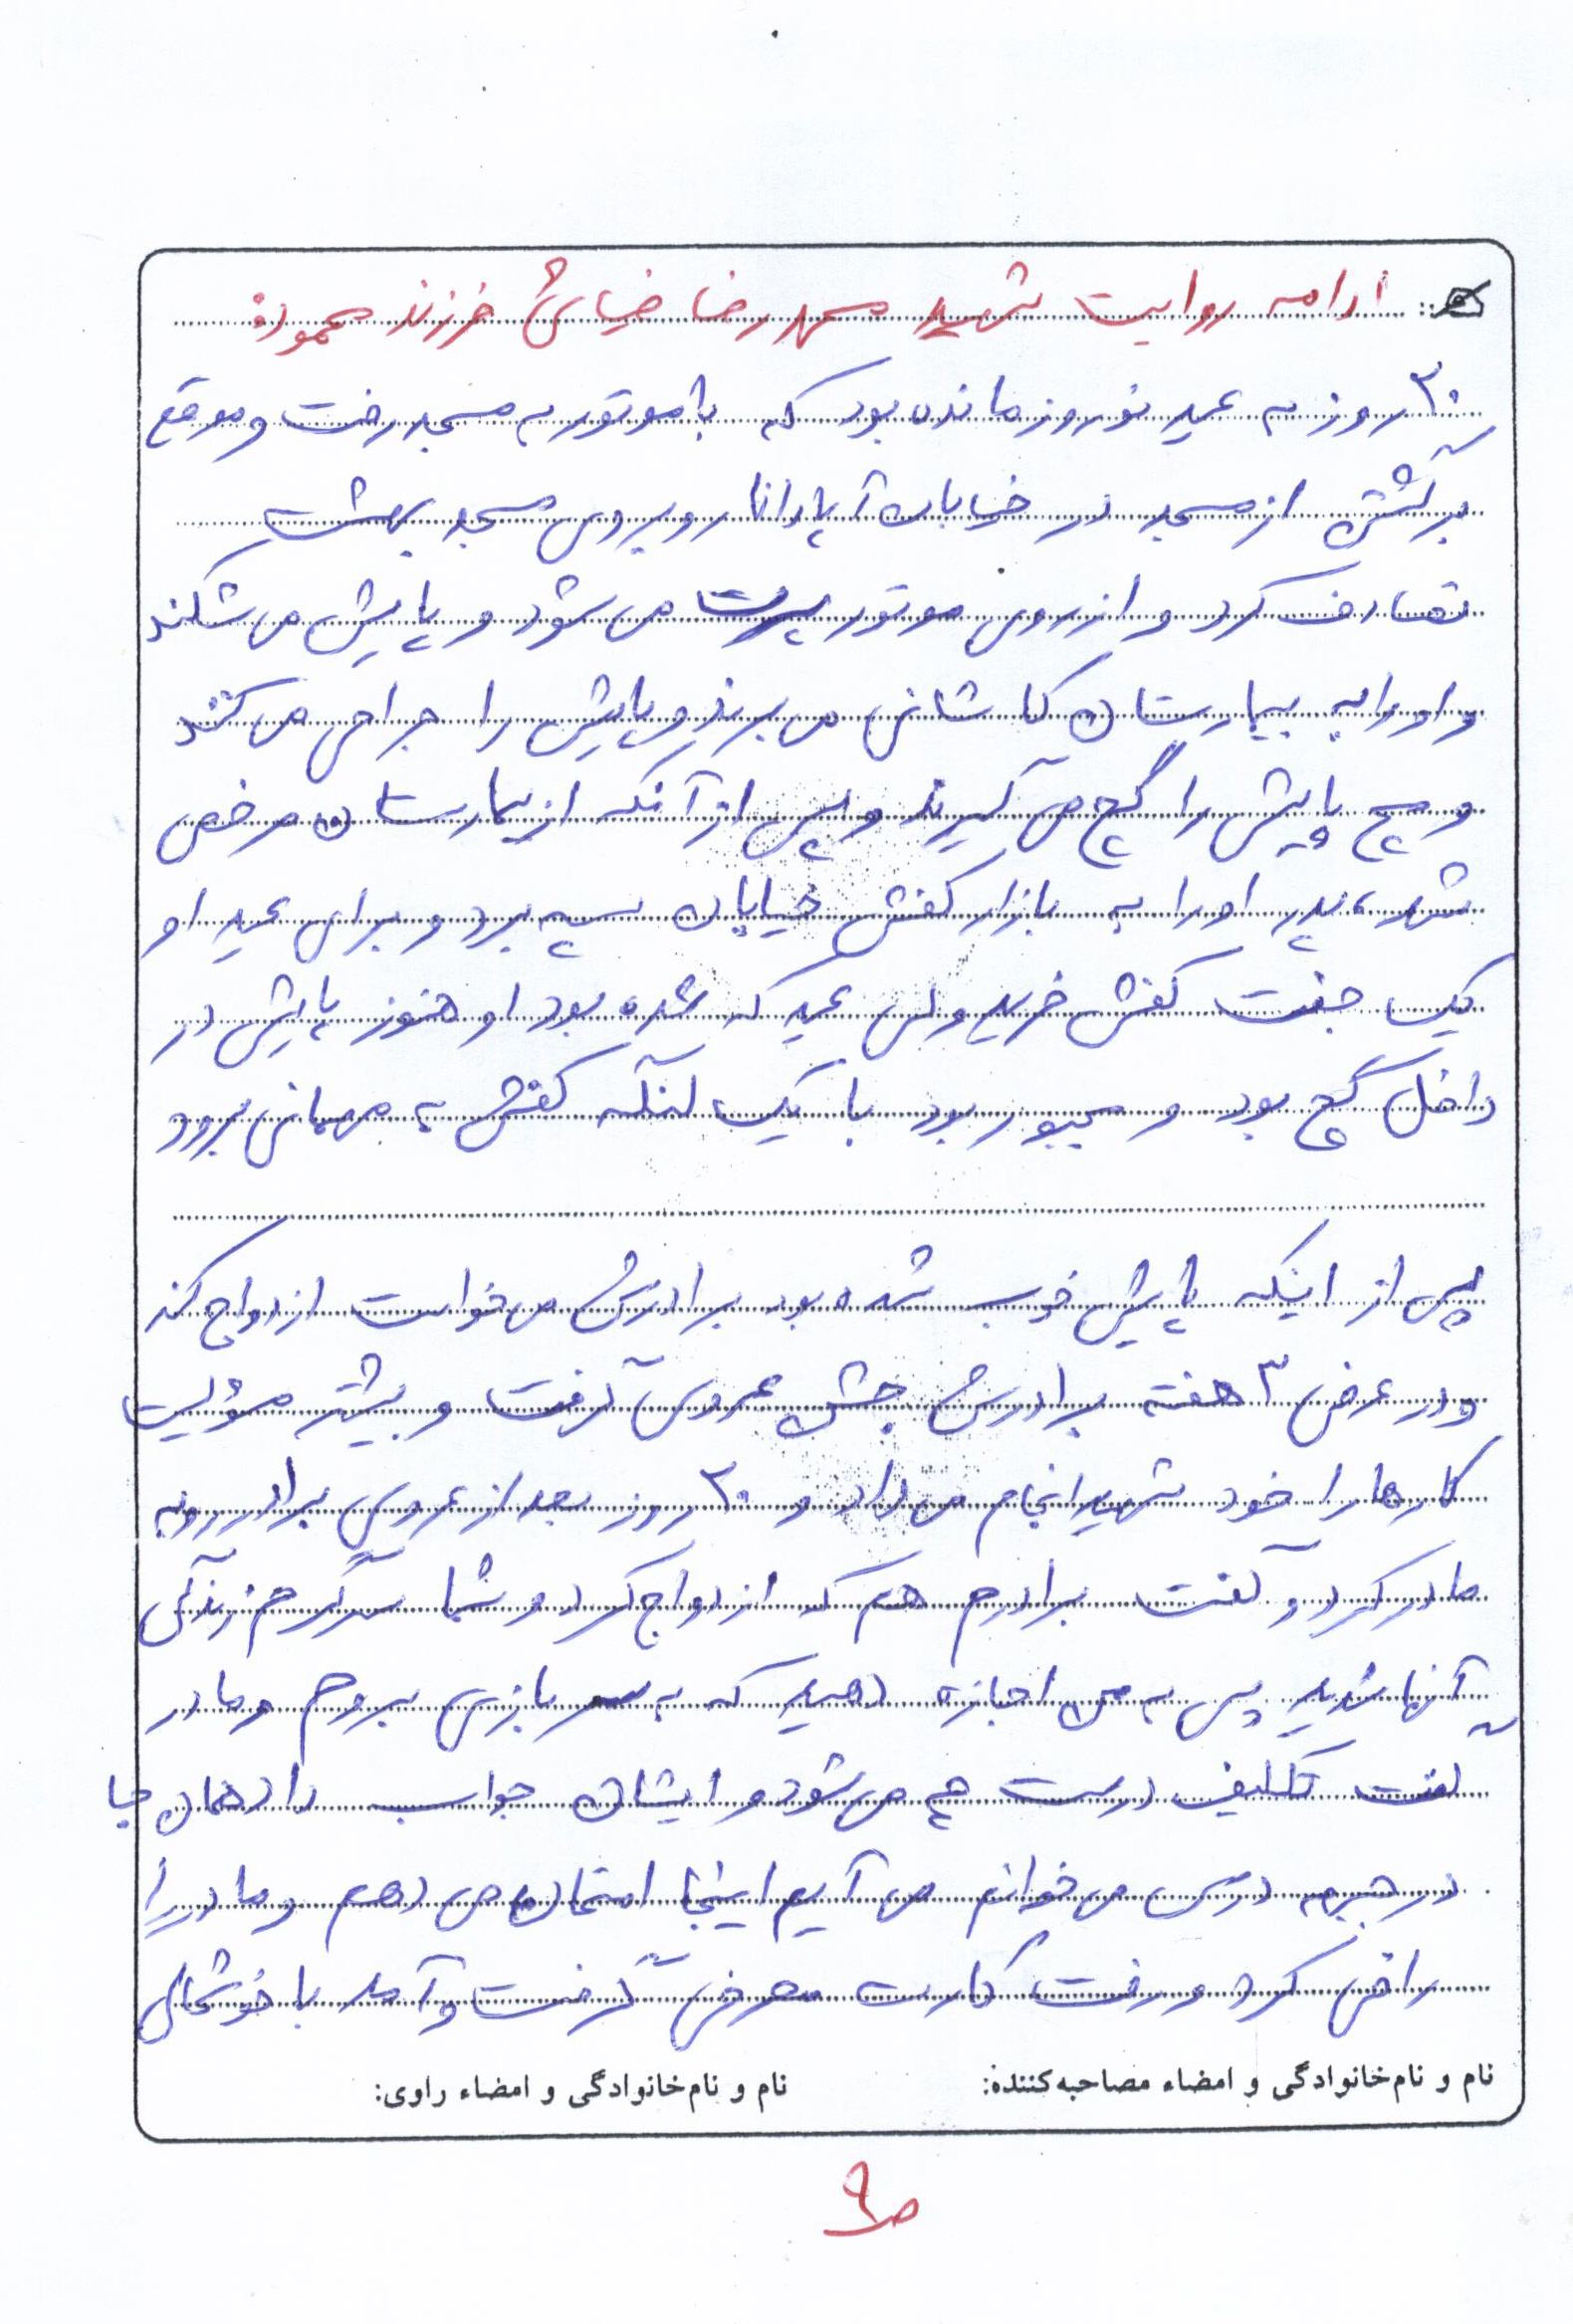 ادامه روایت شهید محمدرضا ضیائی فرزند محمود:
۳۰ روز به عید نوروز مانده بود که با موتور به مسجد رفت و موقع
برگشتن از مسجد در خیابان آپادانا روبروی مسجد بهشت
تصادف کرد و از روی موتور پرت می شود و پایش می شکند
و او را به بیمارستان کاشانی می برند و پایش را جراحی می کنند
و مچ پایش را گچ می گیرند و پس از آنکه از بیمارستان مرخص
شد، پدر او را به بازار کفش خیابان سپه برد و برای عید او
یک جفت کفش خرید ولی عید که شده بود او هنوز پایش در
داخل گچ بود و مجبور بود با یک لنگه کفش به مهمانی برود
پس از اینکه پایش خوب شده بود برادرش می خواست ازدواج کند
و در عرض ۳ هفته برادرش جشن عروسی گرفت و بیشتر مسؤلیت
کارها را خود شهید انجام می داد و ۲۰ روز بعد از عروسی برادر رو به
مادر کرد و گفت برادرم هم که ازدواج کرد و شما سرگرم زندگی
آنها شدید پس به من اجازه دهید که به سربازی بروم و مادر
گفت تکلیف درست چه می شود و ایشان جواب داد همان جا
در جبهه درس می خوانم می آیم اینجا امتحان می دهم و مادر را
راضی کرد و رفت کارت معرفی گرفت و آمد با خوشحالی
نام و نام خانوادگی و امضاء مصاحبه کننده: نام و نام خانوادگی و امضاء راوی:
ص۹